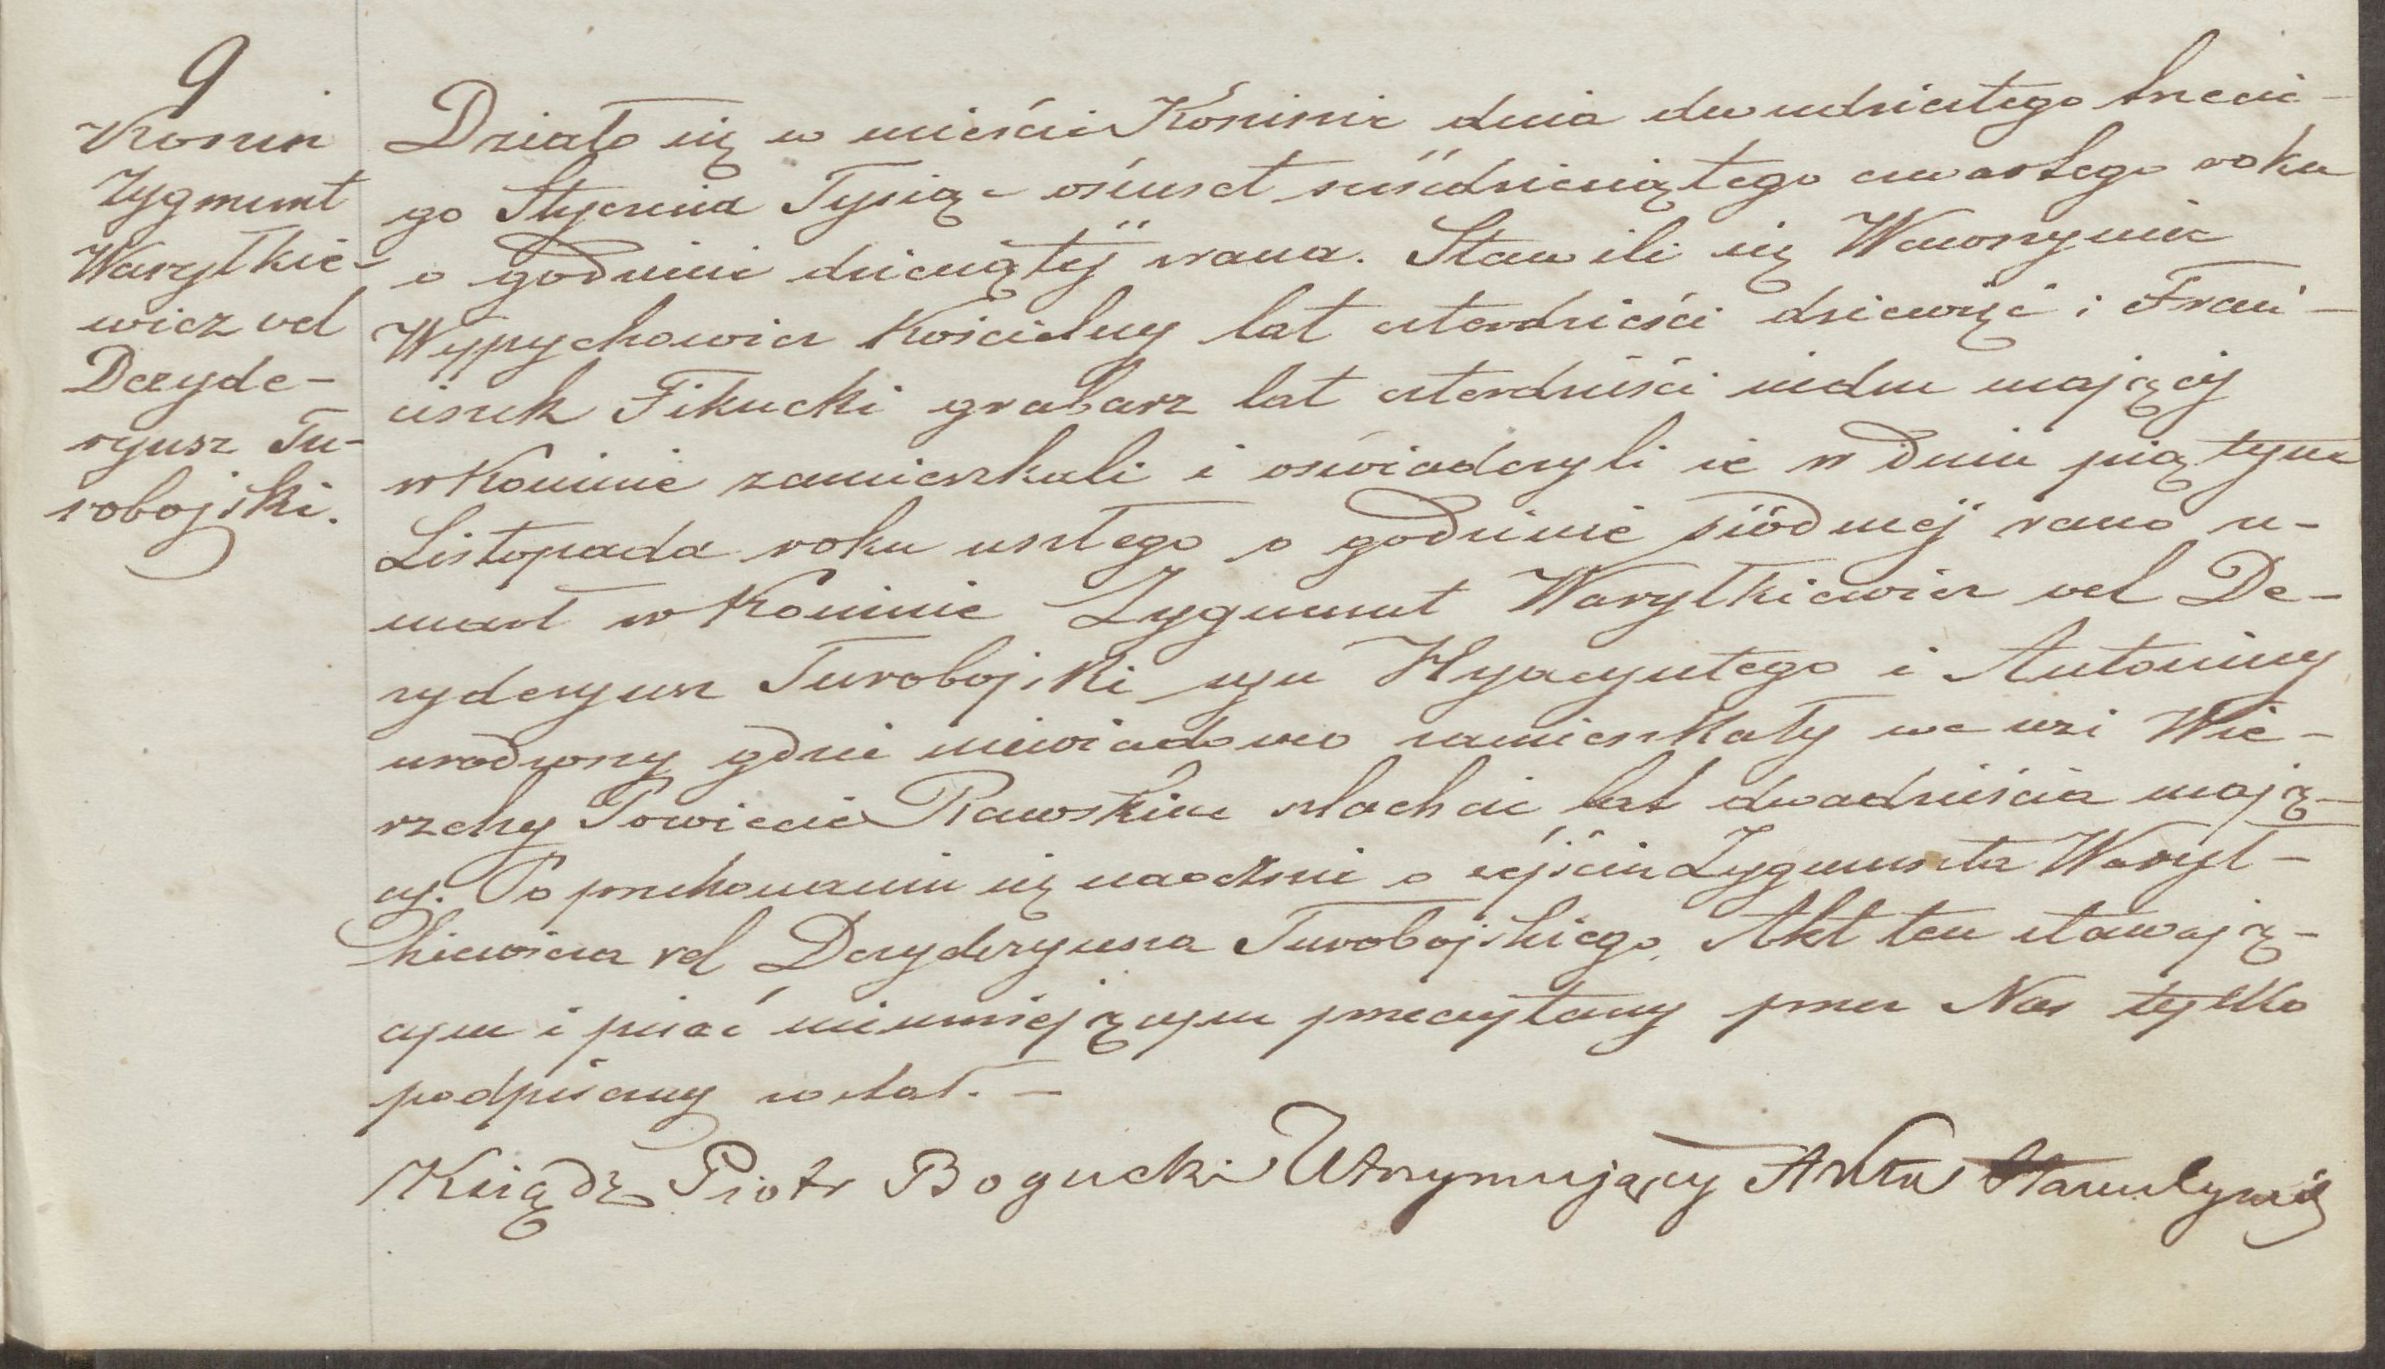 9
Konin
Zygmunt
Warytkie-
wicz vel
Dezyde-
ryusz Tu-
robojski.
Działo się w mieście Koninie dnia dwudziestego trzecie-
go Stycznia Tysiąc ośmset sześćdziesiątego czwartego roku
o godzinie dziesiątej zrana. Stawili się Wawrzyniec
Wypychowicz Kościelny lat czterdzieści dziewięć i Fran-
ciszek Fikucki grabarz lat czterdzieści siedm mający
w Koninie zamieszkali i oświadczyli że w dniu piątym
Listopada roku zeszłego o godzinie siódmej rano u-
marł w Koninie Zygmunt Warytkiewicz vel De-
zyderyusz Turobojski syn Hyacyntego i Antoniny
urodzony gdzie niewiadomo zamieszkały we wsi Wie-
rzchy Powiecie Rawskim szlachcic lat dwadzieścia mają-
cy. Po przekonaniu się naocznie o zejściu Zygmunta Waryt-
kiewicza vel Dezyderyusza Turobojskiego, Akt ten stawają-
cym i pisać nieumiejącym przeczytany przez Nas tylko
podpisany został. –
Ksiądz Piotr Bogucki Utrzymujący Akta Stanu Cywil